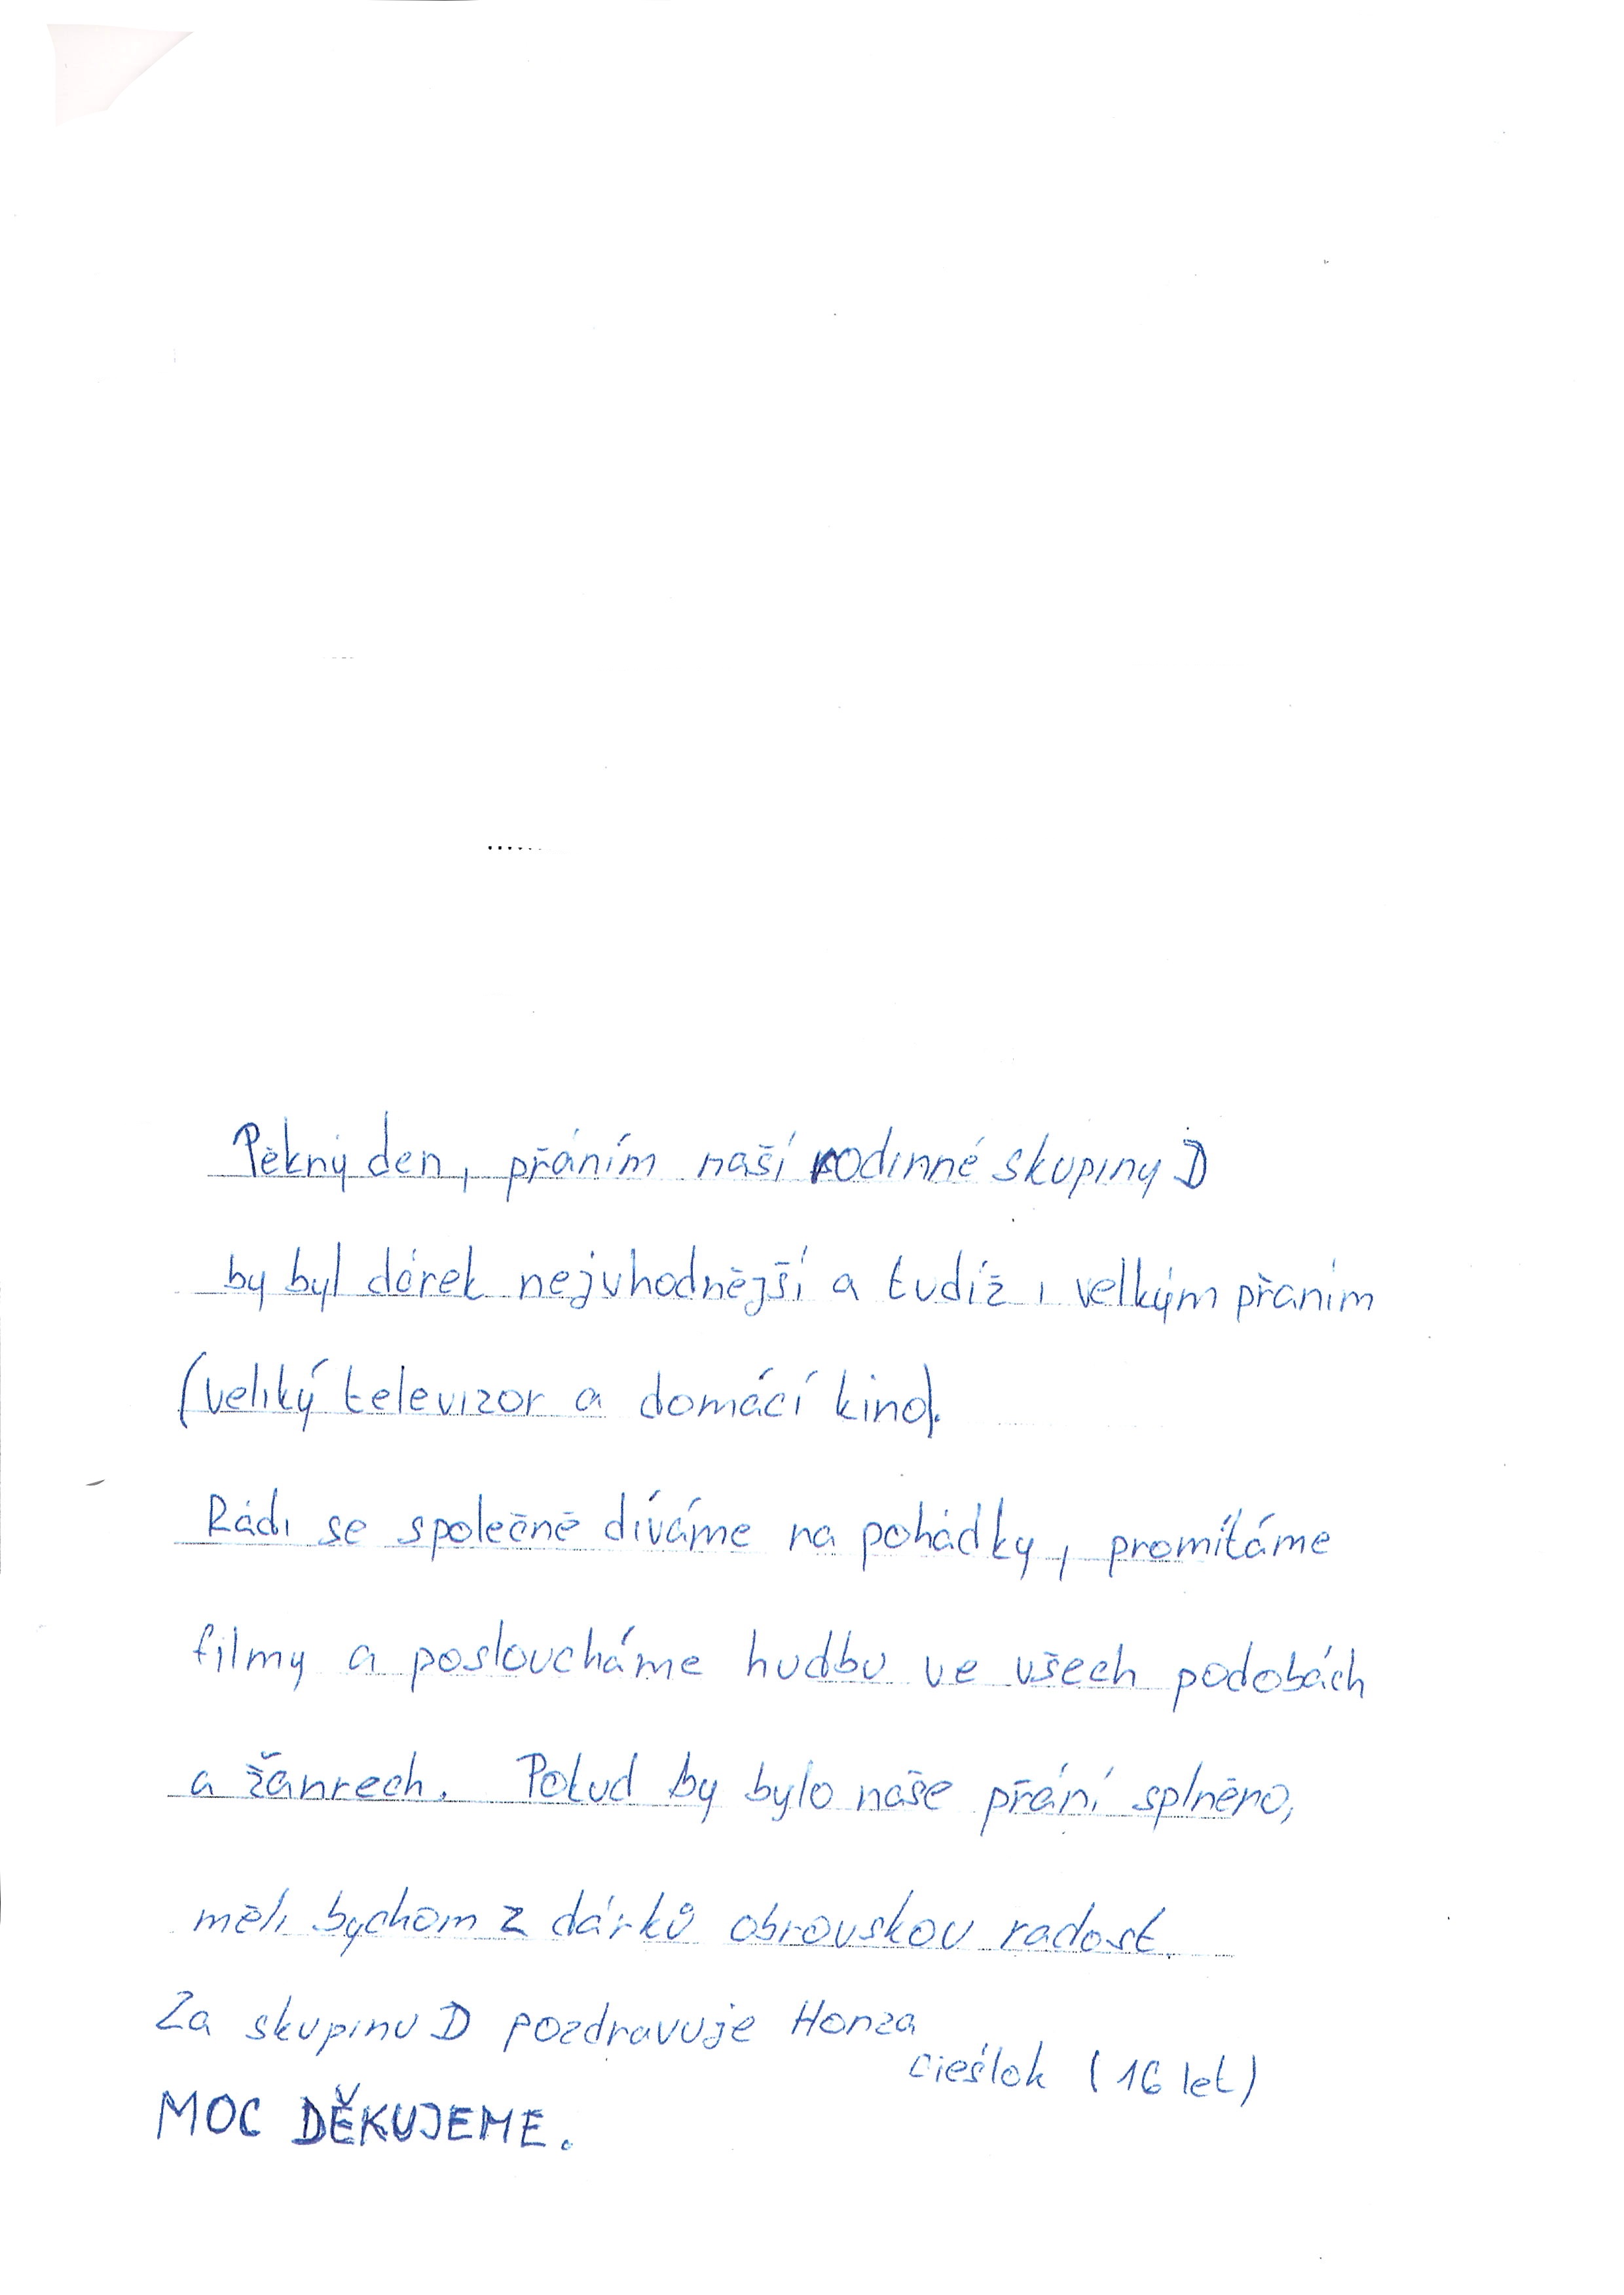 Pěkný den, přáním naší rodinné skupiny D
by byl dárek nejvhodnější a tudíž i velkým přáním
(veliký televizor a domácí kino).
Rádi se společně díváme na pohádky, promítáme
filmy a posloucháme hudbu ve všech podobách
a žánrech. Pokud by bylo naše přání splněno,
měli bychom z dárků obrovskou radost.
Za skupinu D pozdravuje Honza
Cieślok (16 let)
MOC DĚKUJEME.